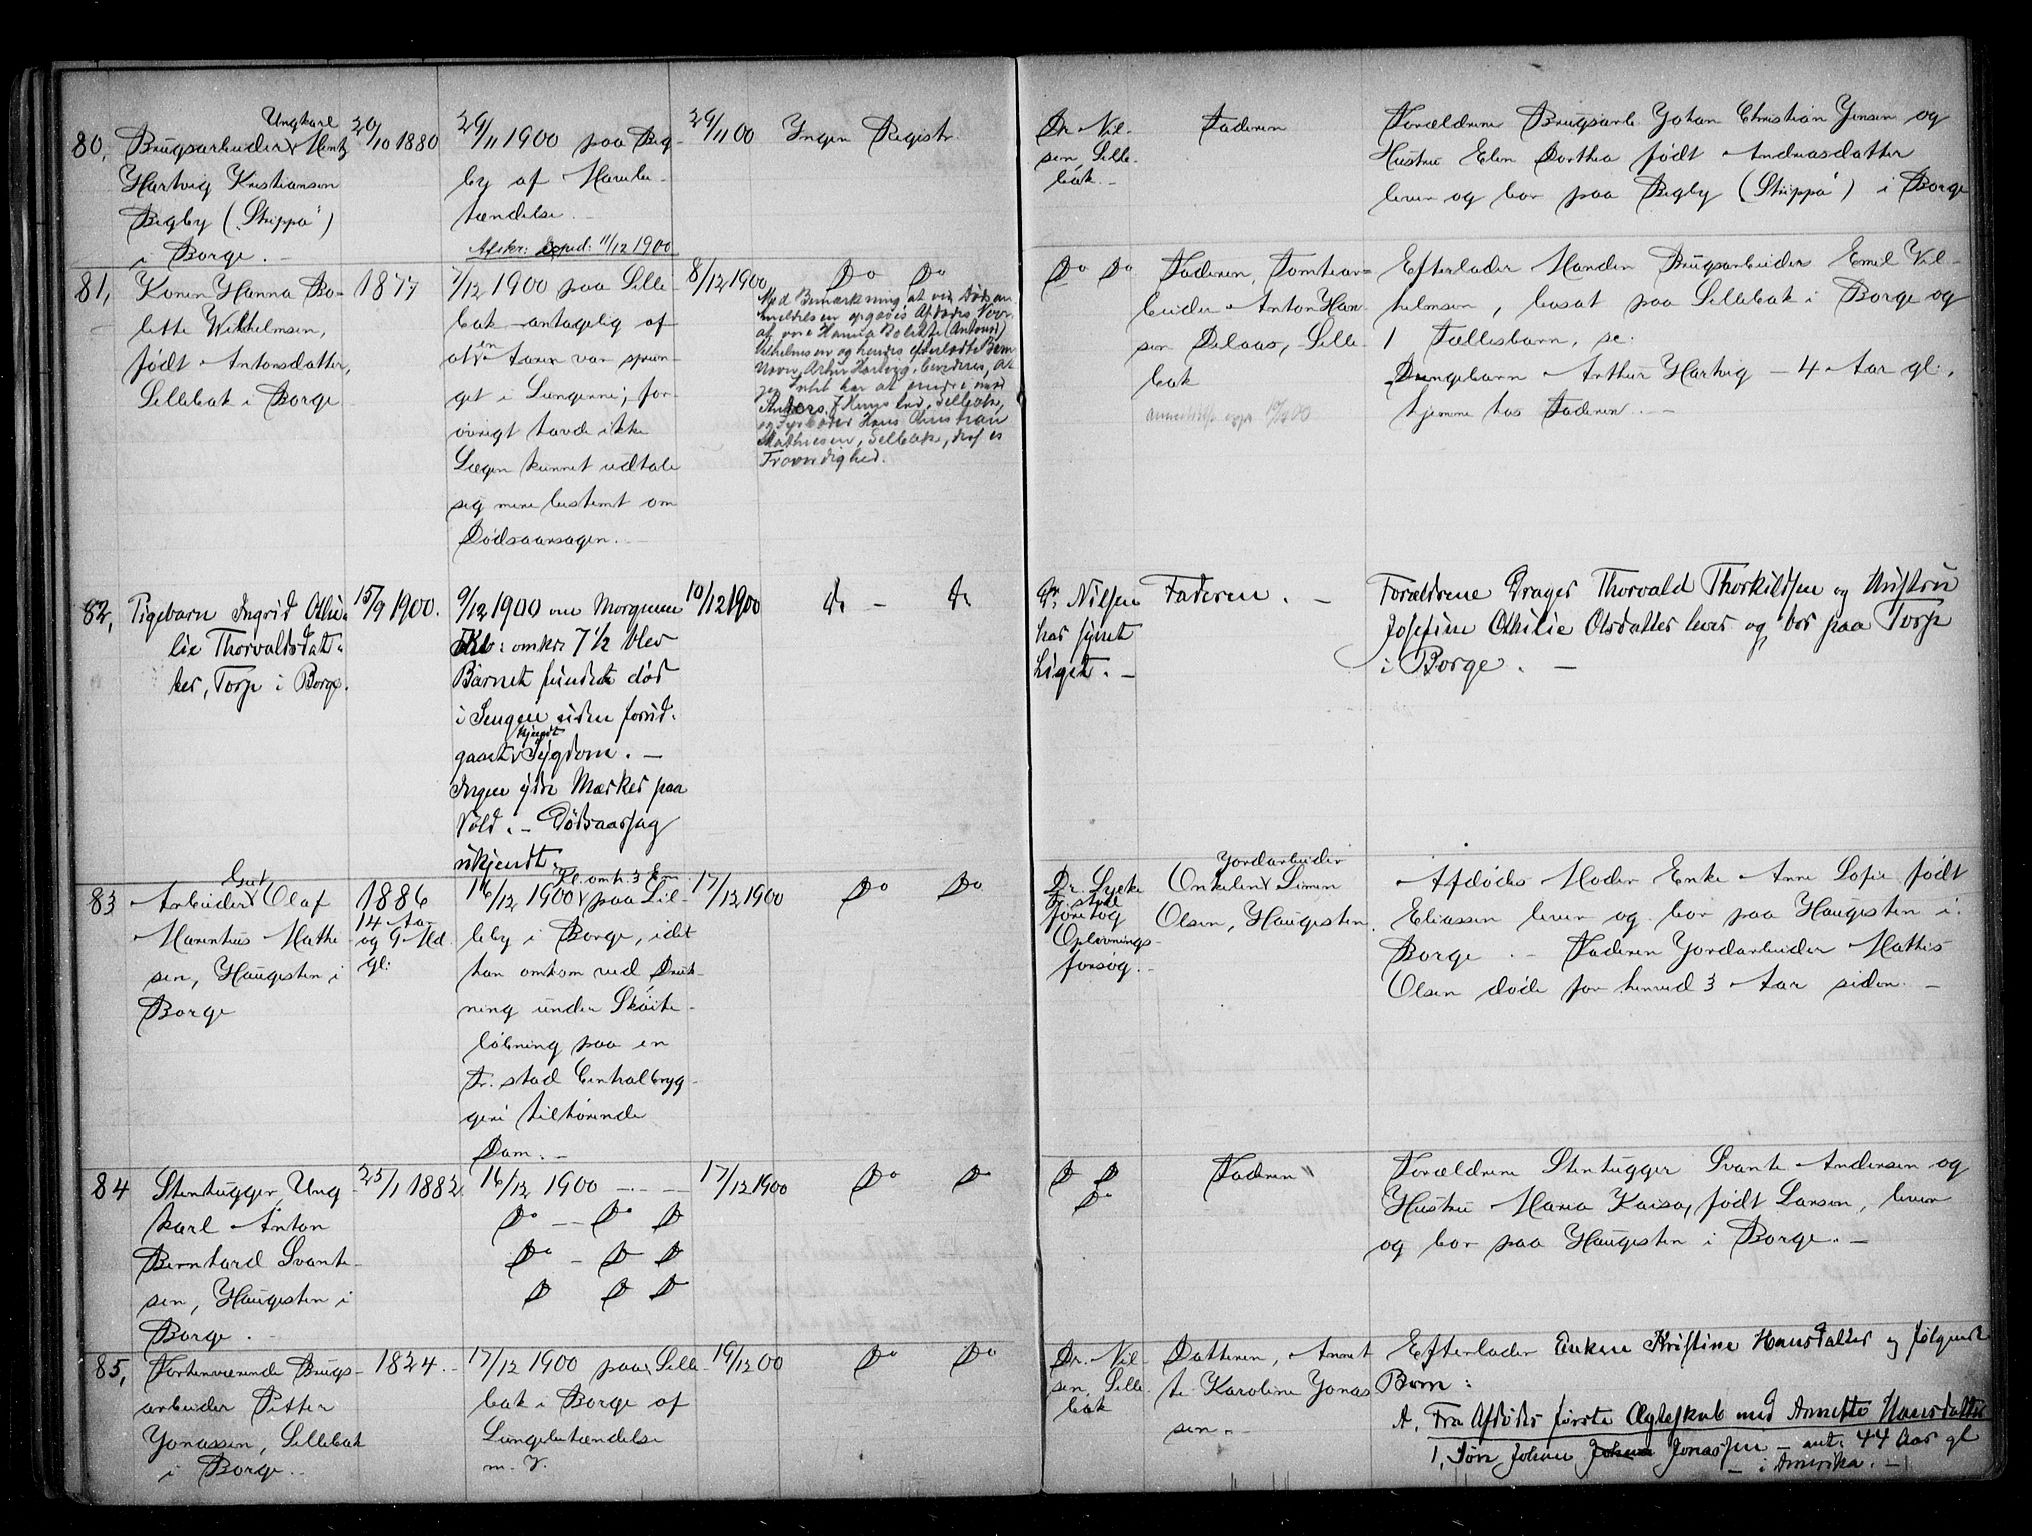 80. Brugsarbeider Ungkarl Mentz
Hartvig Kristiansen
Begby (Strippa")
i Borge.
20/10 1880
29/11 1900 paa Beg-
by af
tændelse.
Afskr: exped: 11/12 1900
29/11 00
Ingen Registr.
Dr. Nil-
sen, Selle-
bak.
Faderen
Forældrene Brugsarb Johan Christian Jensen og
Hustru Elen Dorthea født Andreasdatter
lever og bor paa Begby (Strippa") i Borge
81, Konen Hanna Bo-
lette Wilhelmsen,
født Antonsdatter,
Sellebak i Borge
1877
7/12 1900 paa Selle-
bak antagelig af
at en Aaren var sprun-
get i Lungerne; for-
øvrigt havde ikke
Lægen kunnet udtale
sig mere bestemt om
Dødsaarsagen.
8/12 1900
Do Do
Med Bemærkning at ved Dødsan-
meldelsen opgaves Afdødes Navn
at være Hanna Bolette (Antonsd)
Vilhelmsen og hendes efterladte Barn
Navn Artur Hartvig,
jeg Intet har at
Anders
og Hans Christian
Mathiesen, Sellebak,
Troværdighed.
Do Do
Faderen, Tomtear-
beider Anton Han-
sen Dalaas, Selle-
bak
Efterlader Manden Brugsarbeider Emil Vil-
helmsen, bosat paa Sellebak i Borge og
1 Fællesbarn, se:
Drengebarn Arthur Hartvig – 4 Aar gl.,
hjemme hos Faderen. –
82, Pigebarn Ingrid Othi-
lie Thorvaldsdat-
ter, Torp i Borge.
15/9 1900.
9/12 1900 om Morgenen
Kl: omkr. 7 1/2 blev
Barnet fundet død
i Sengen uden forud-
gaaet kjendt Sygdom. –
Ingen ydre Mærker paa
Vold. – Dødsaarsag
ukjendt.
10/12 1900
do – do
Dr. Nilsen
har synet
Liget. –
Faderen. –
Forældrene Drager Thorvald Thorkildsen og Hustru
Josefine Othilie Olsdatter lever og bor paa Torp
i Borge. –
83 Arbeider Gut Olaf
Marentius Mathi-
sen, Haugesten i
Borge
1886
14 Aar
og 9 Md.
gl:
16/12 1900 Kl. omtr. 3 Em paa Lil-
leby i Borge, idet
han omkom ved Druk-
ning under Skøite-
løbning paa en
Fr.stad Centralbryg-
geri tilhørende
Dam. –
17/12 1900
Do Do
Dr. Lycke
Fr.stad
foretog
Oplivnings-
forsøg. –
Onkelen Jordarbeider Simen
Olsen, Haugesten.
Afdødes Moder Enke Anne Sofie født
Eliassen lever og bor paa Haugesten i
Borge. – Faderen Jordarbeider Mathis
Olsen døde for henved 3 Aar siden. –
84 Stenhugger, Ung-
karl Anton
Bernhard Svante-
sen, Haugesten i
Borge.
25/1 1882
16/12 1900 – –
Do – Do D
Do – D D
D D D
17/12 1900
Do D
D D
Do
Faderen
Forældrene Stenhugger Svante Andersen og
Hustru Maria Kaisa, født Larsen, lever
og bor paa Haugesten i Borge. –
85, Forhenværende Brugs-
arbeider Petter
Jonassen, Sellebak
i Borge.
1824.
17/12 1900 paa Selle-
bak i Borge af
Lungebetændelse
m. V.
19/12 00
Do Do
Dr. Nil-
sen, Selle-
bak
Datteren, Annet-
te Karoline Jonas-
sen. –
Efterlader Enken Kristine Hansdatter og følgende
Børn:
A. Fra Afdødes første Ægteskab med Annette Hansdatter
1, Søn Johan Johan Jonassen – ant: 44 Aar gl
– i Amerika. –